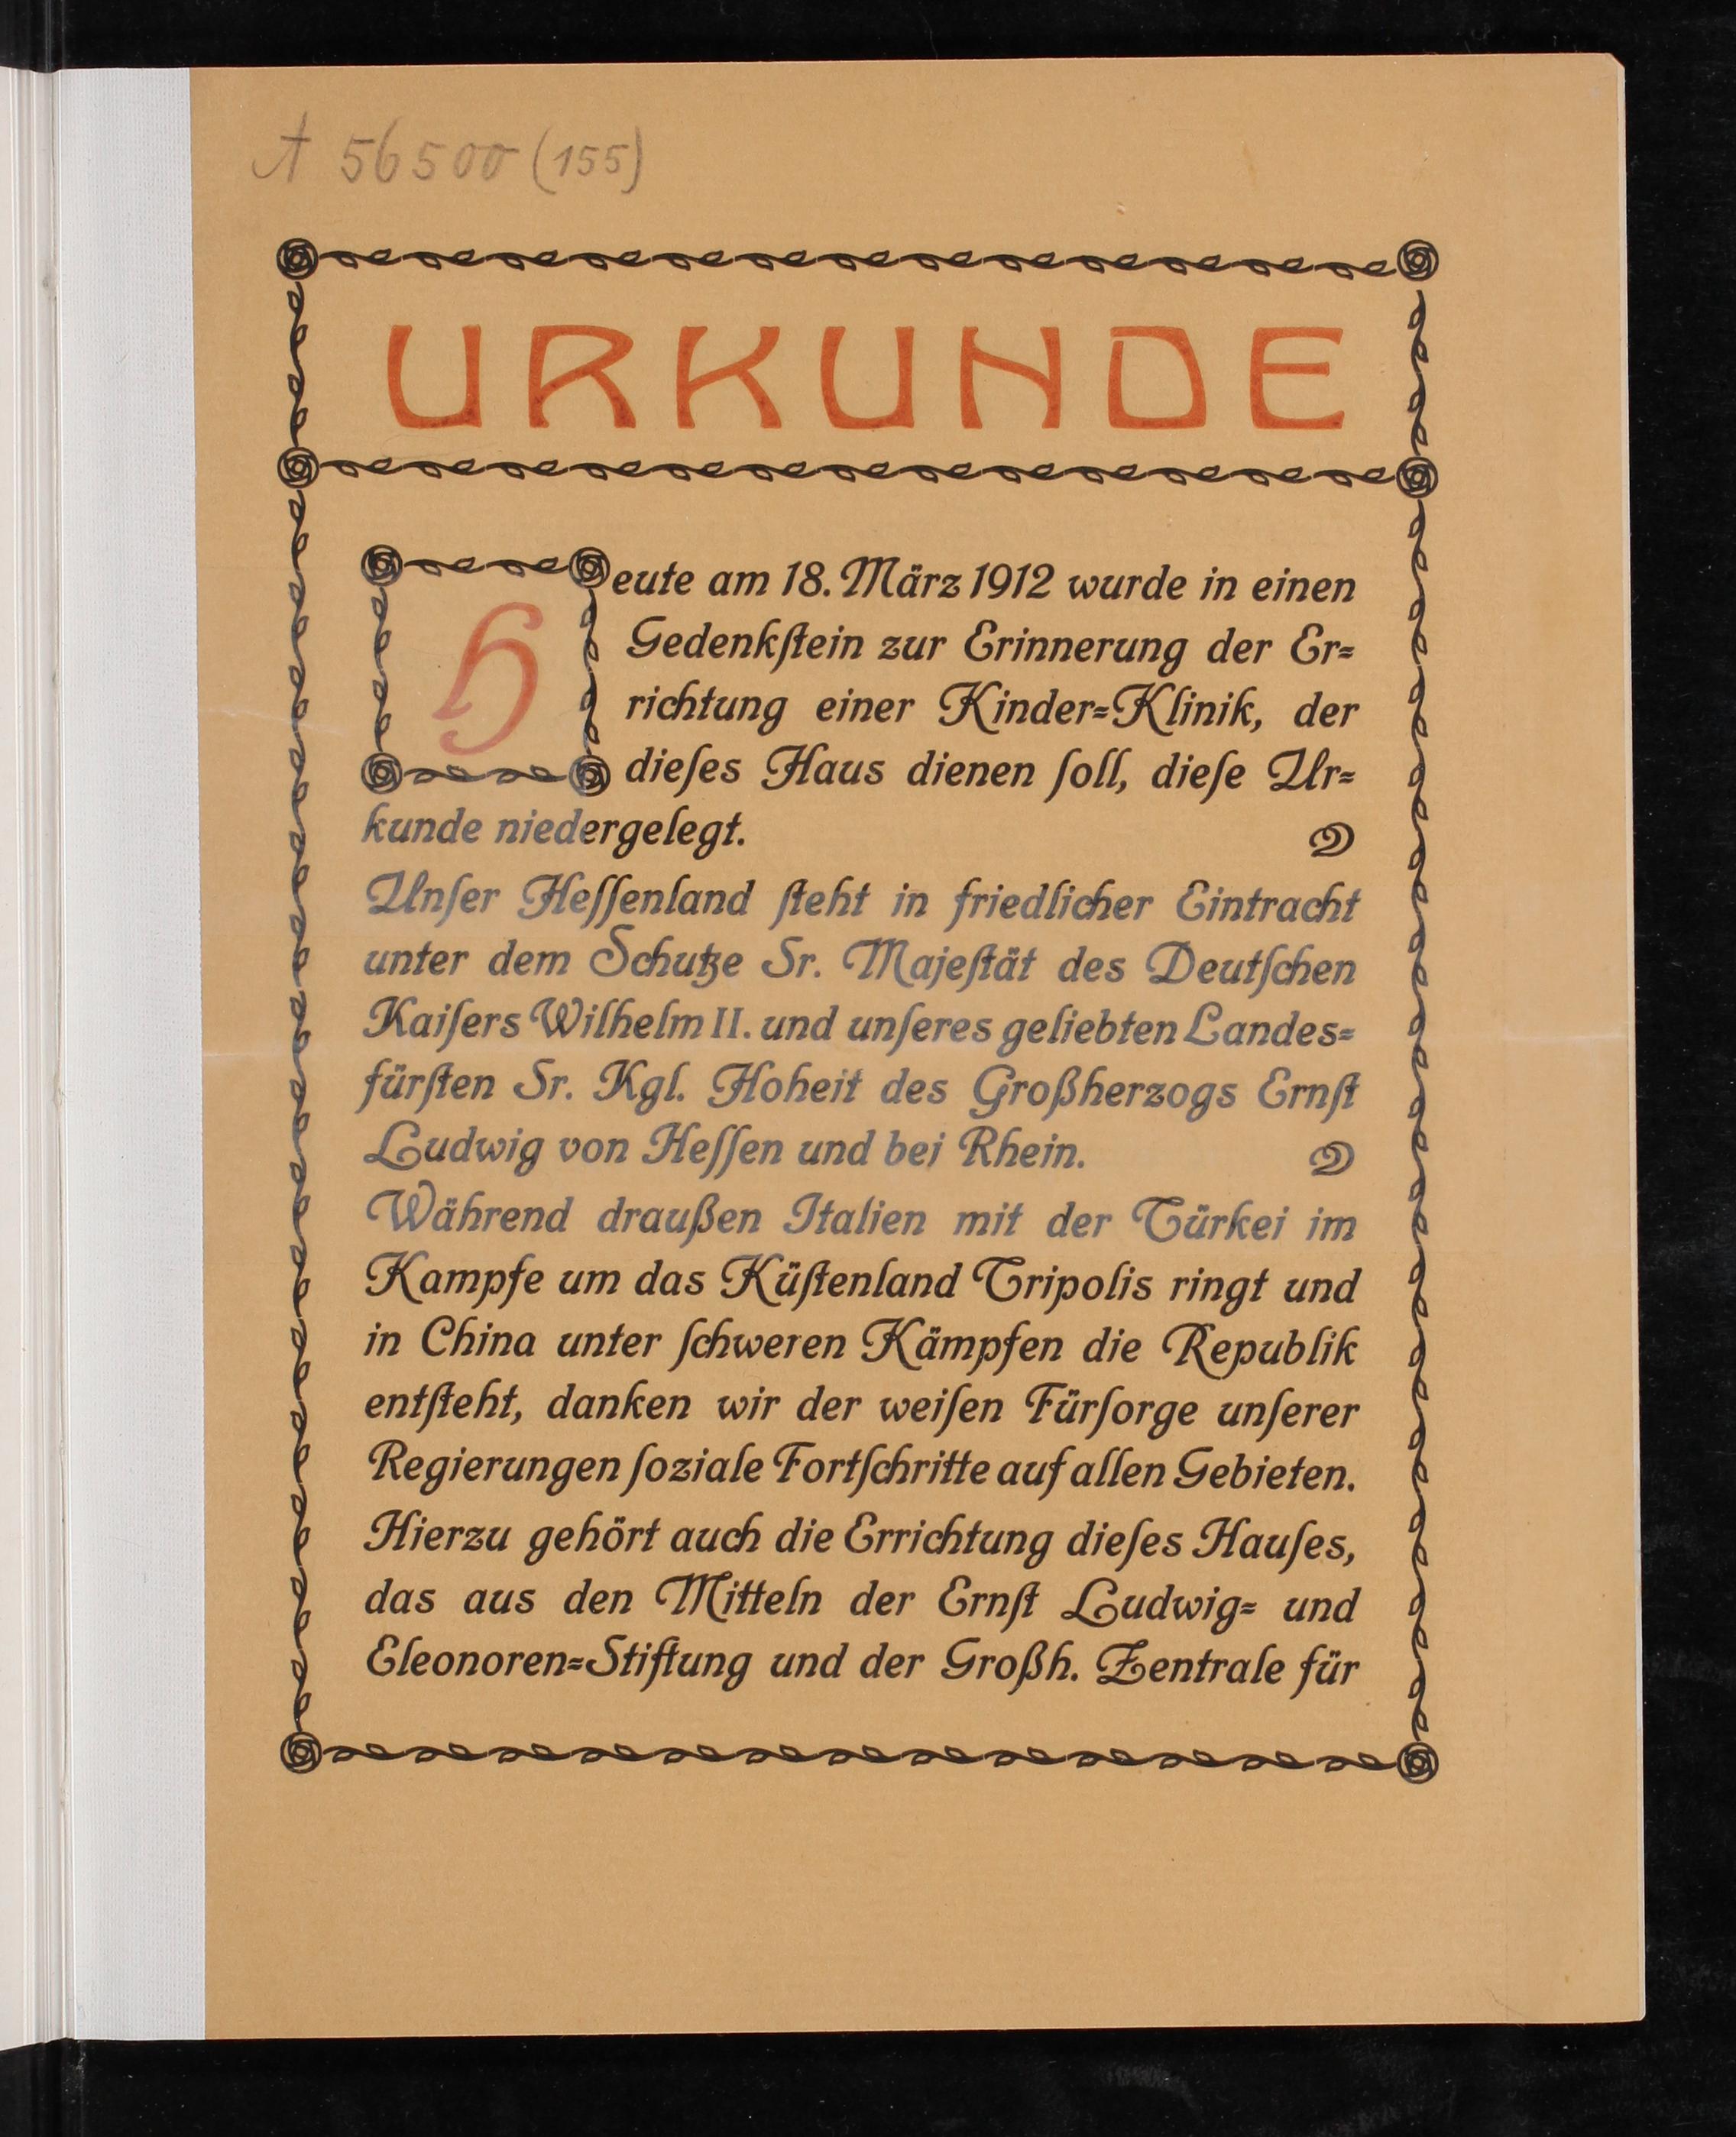 A 56500 (155)
URKUNDE
Heute am 18. März 1912 wurde in einen
Gedenkſtein zur Erinnerung der Er=
richtung einer Kinder=Klinik, der
dieſes Haus dienen ſoll, dieſe Ur=
kunde niedergelegt.
Unſer Heſſenland ſteht in friedlicher Eintracht
unter dem Schutze Sr. Majeſtät des Deutſchen
Kaiſers Wilhelm II. und unſeres geliebten Landes=
fürſten Sr. Kgl. Hoheit des Großherzogs Ernſt
Ludwig von Heſſen und bei Rhein.
Während draußen Italien mit der Türkei im
Kampfe um das Küſtenland Tripolis ringt und
in China unter ſchweren Kämpfen die Republik
entſteht, danken wir der weiſen Fürſorge unſerer
Regierungen ſoziale Fortſchritte auf allen Gebieten.
Hierzu gehört auch die Errichtung dieſes Hauſes,
das aus den Mitteln der Ernſt Ludwig= und
Eleonoren=Stiftung und der Großh. Zentrale für